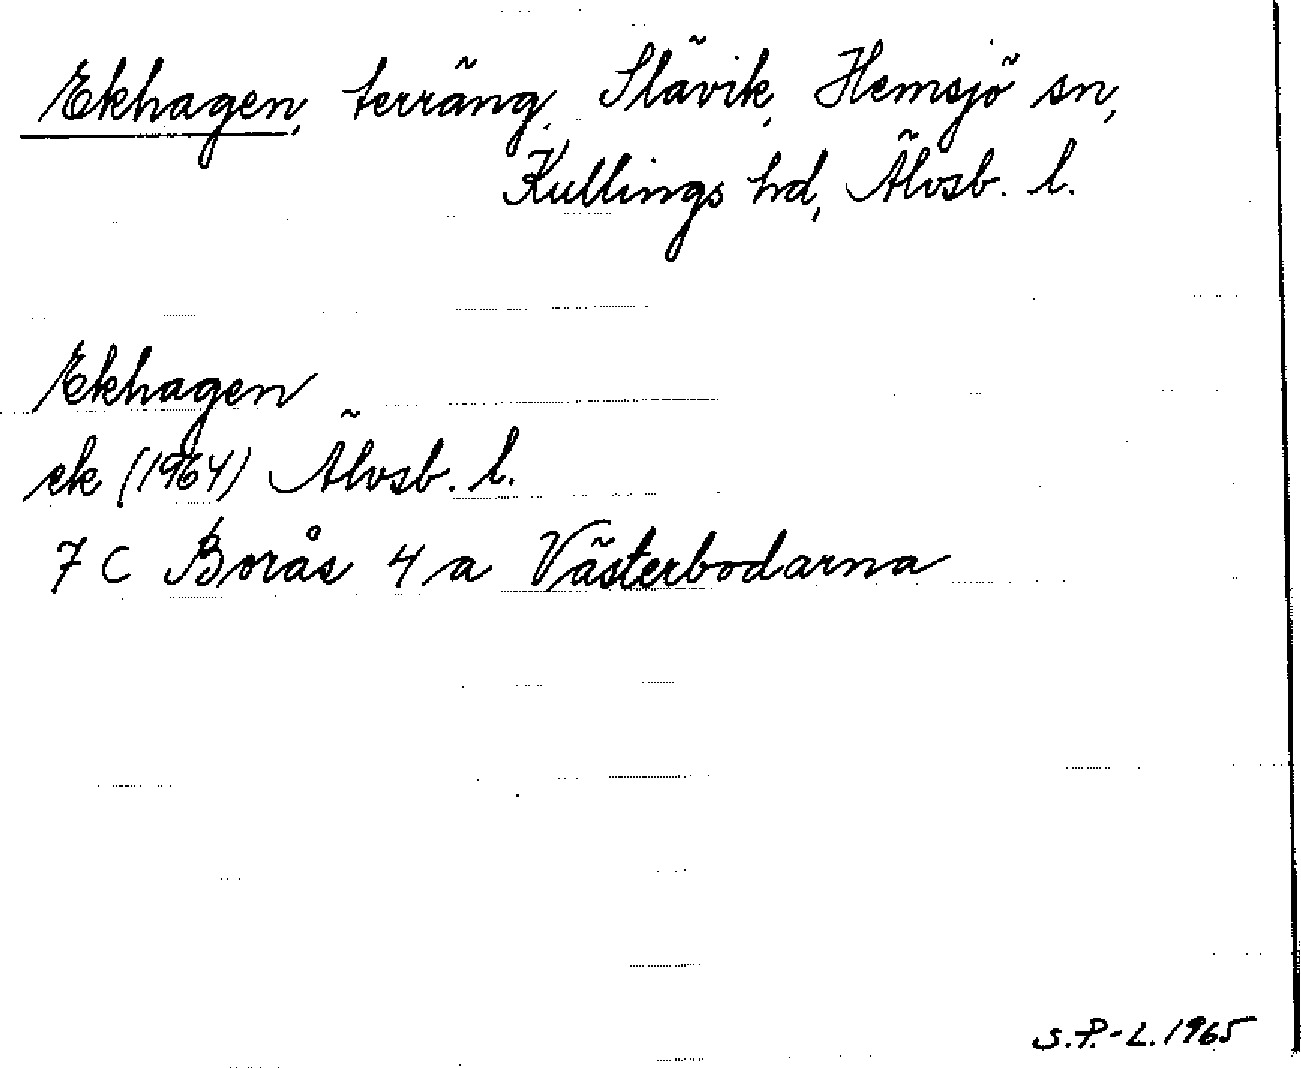 Ekhagen, terräng, Slävik, Hemsjö sn,
Kullings hd, Älvsb. l.
Ekhagen
ek (1964) Älvsb. l.
7 C Borås 4 a Västerbodarna
S.P.-L. 1965